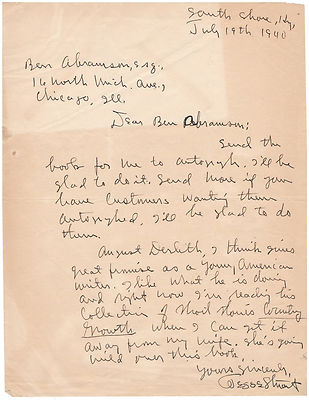 South Shore, Ky,
July 19th 1940
Ben Abramson, Esq.,
16 North Mich. Ave.,
Chicago, Ill.
Dear Ben Abramson;
Send the
books for me to autograph. I'll be
glad to do it. Send more if you
have customers wanting them
autographed, I'll be glad to do
them.
August Derleth, I think gives
great promise as a young American
writer. I like what he is doing
and right now I'm reading his
collection of short stories Country
Growth when I can get it
away from my wife. She's going
wild over this book.
Yours Sincerely,
Jesse Stuart